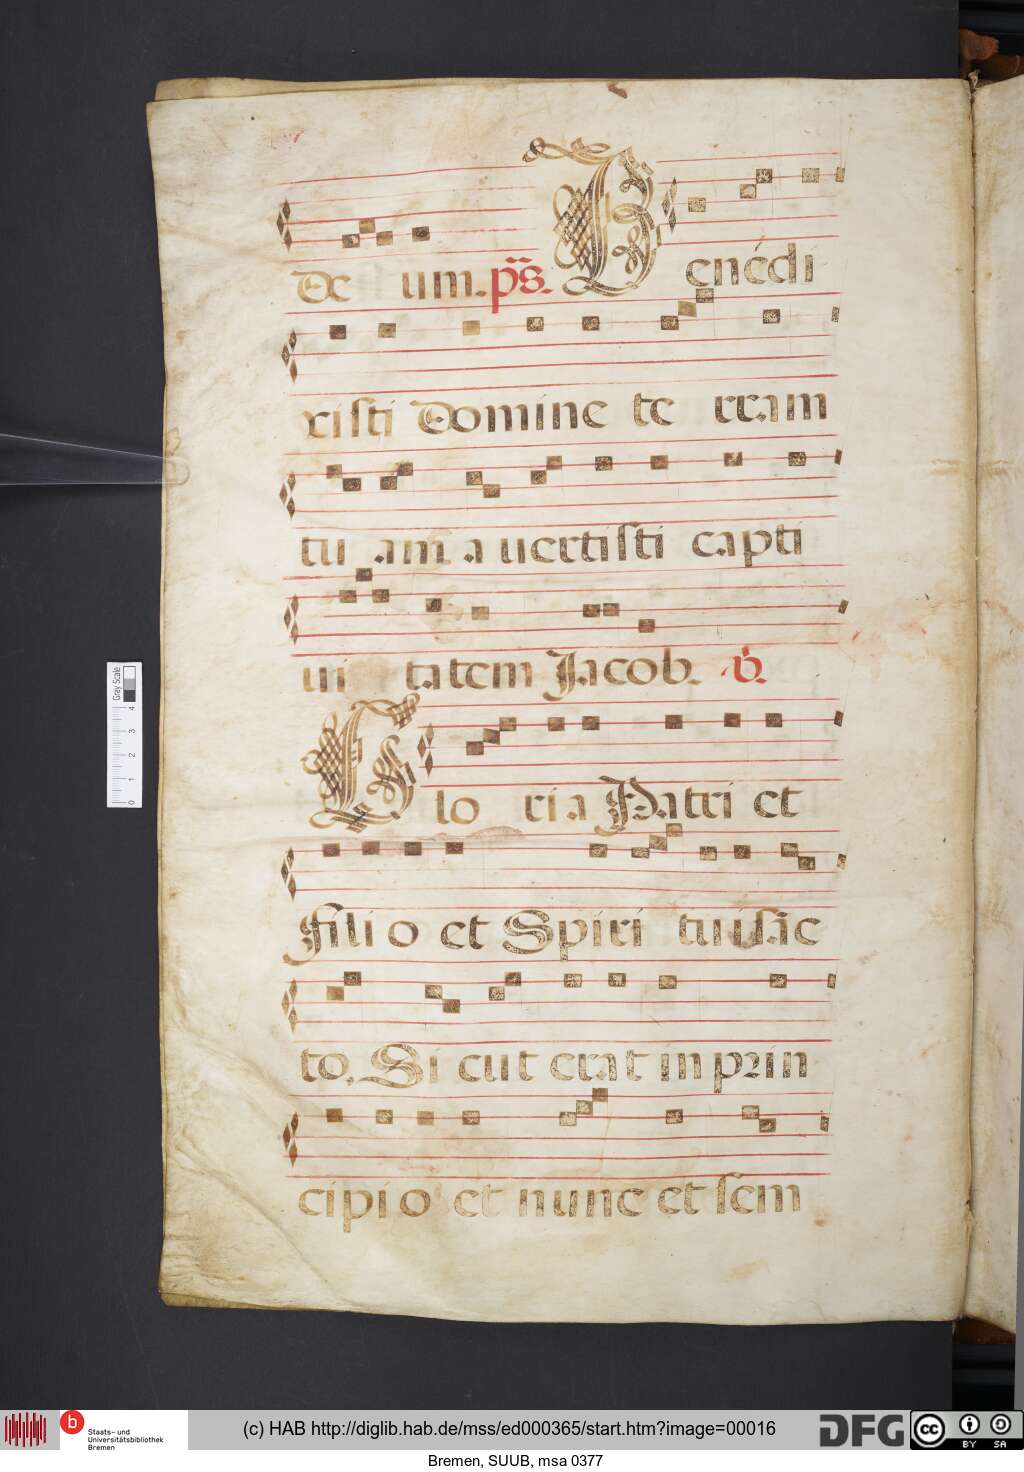 De um. ps. Benédi
xisti Domine te rram
tu am a uertisti capti
ui tatem Jacob. v.
Glo ria Patri et
Filio et Spiri tui sác
to, Si cut erat in prin
cipio et nunc et sem
Gray Scale
0 1 2 3 4
b Staats- und Universitätsbibliothek Bremen
(c) HAB http://diglib.hab.de/mss/ed000365/start.htm?image=00016
DFG
cc BY SA
Bremen, SUUB, msa 0377